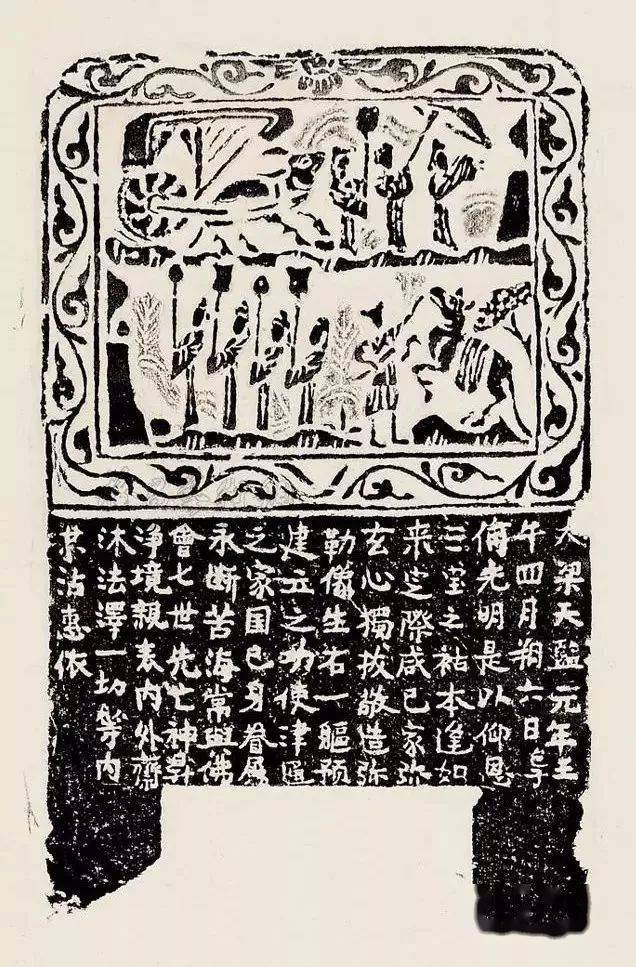 大梁天監元年壬
午四月朔六日
光明是以仰恩
三之祜本逢如
来際咸已家弥
玄心獨拔敬造弥
勒像生右一軀預
建立之功使津通
之家国已身眷属
永断苦海常與佛
會七世先亡神昇
浄境親表内外齋
沐法澤一切等内
其沾惠依